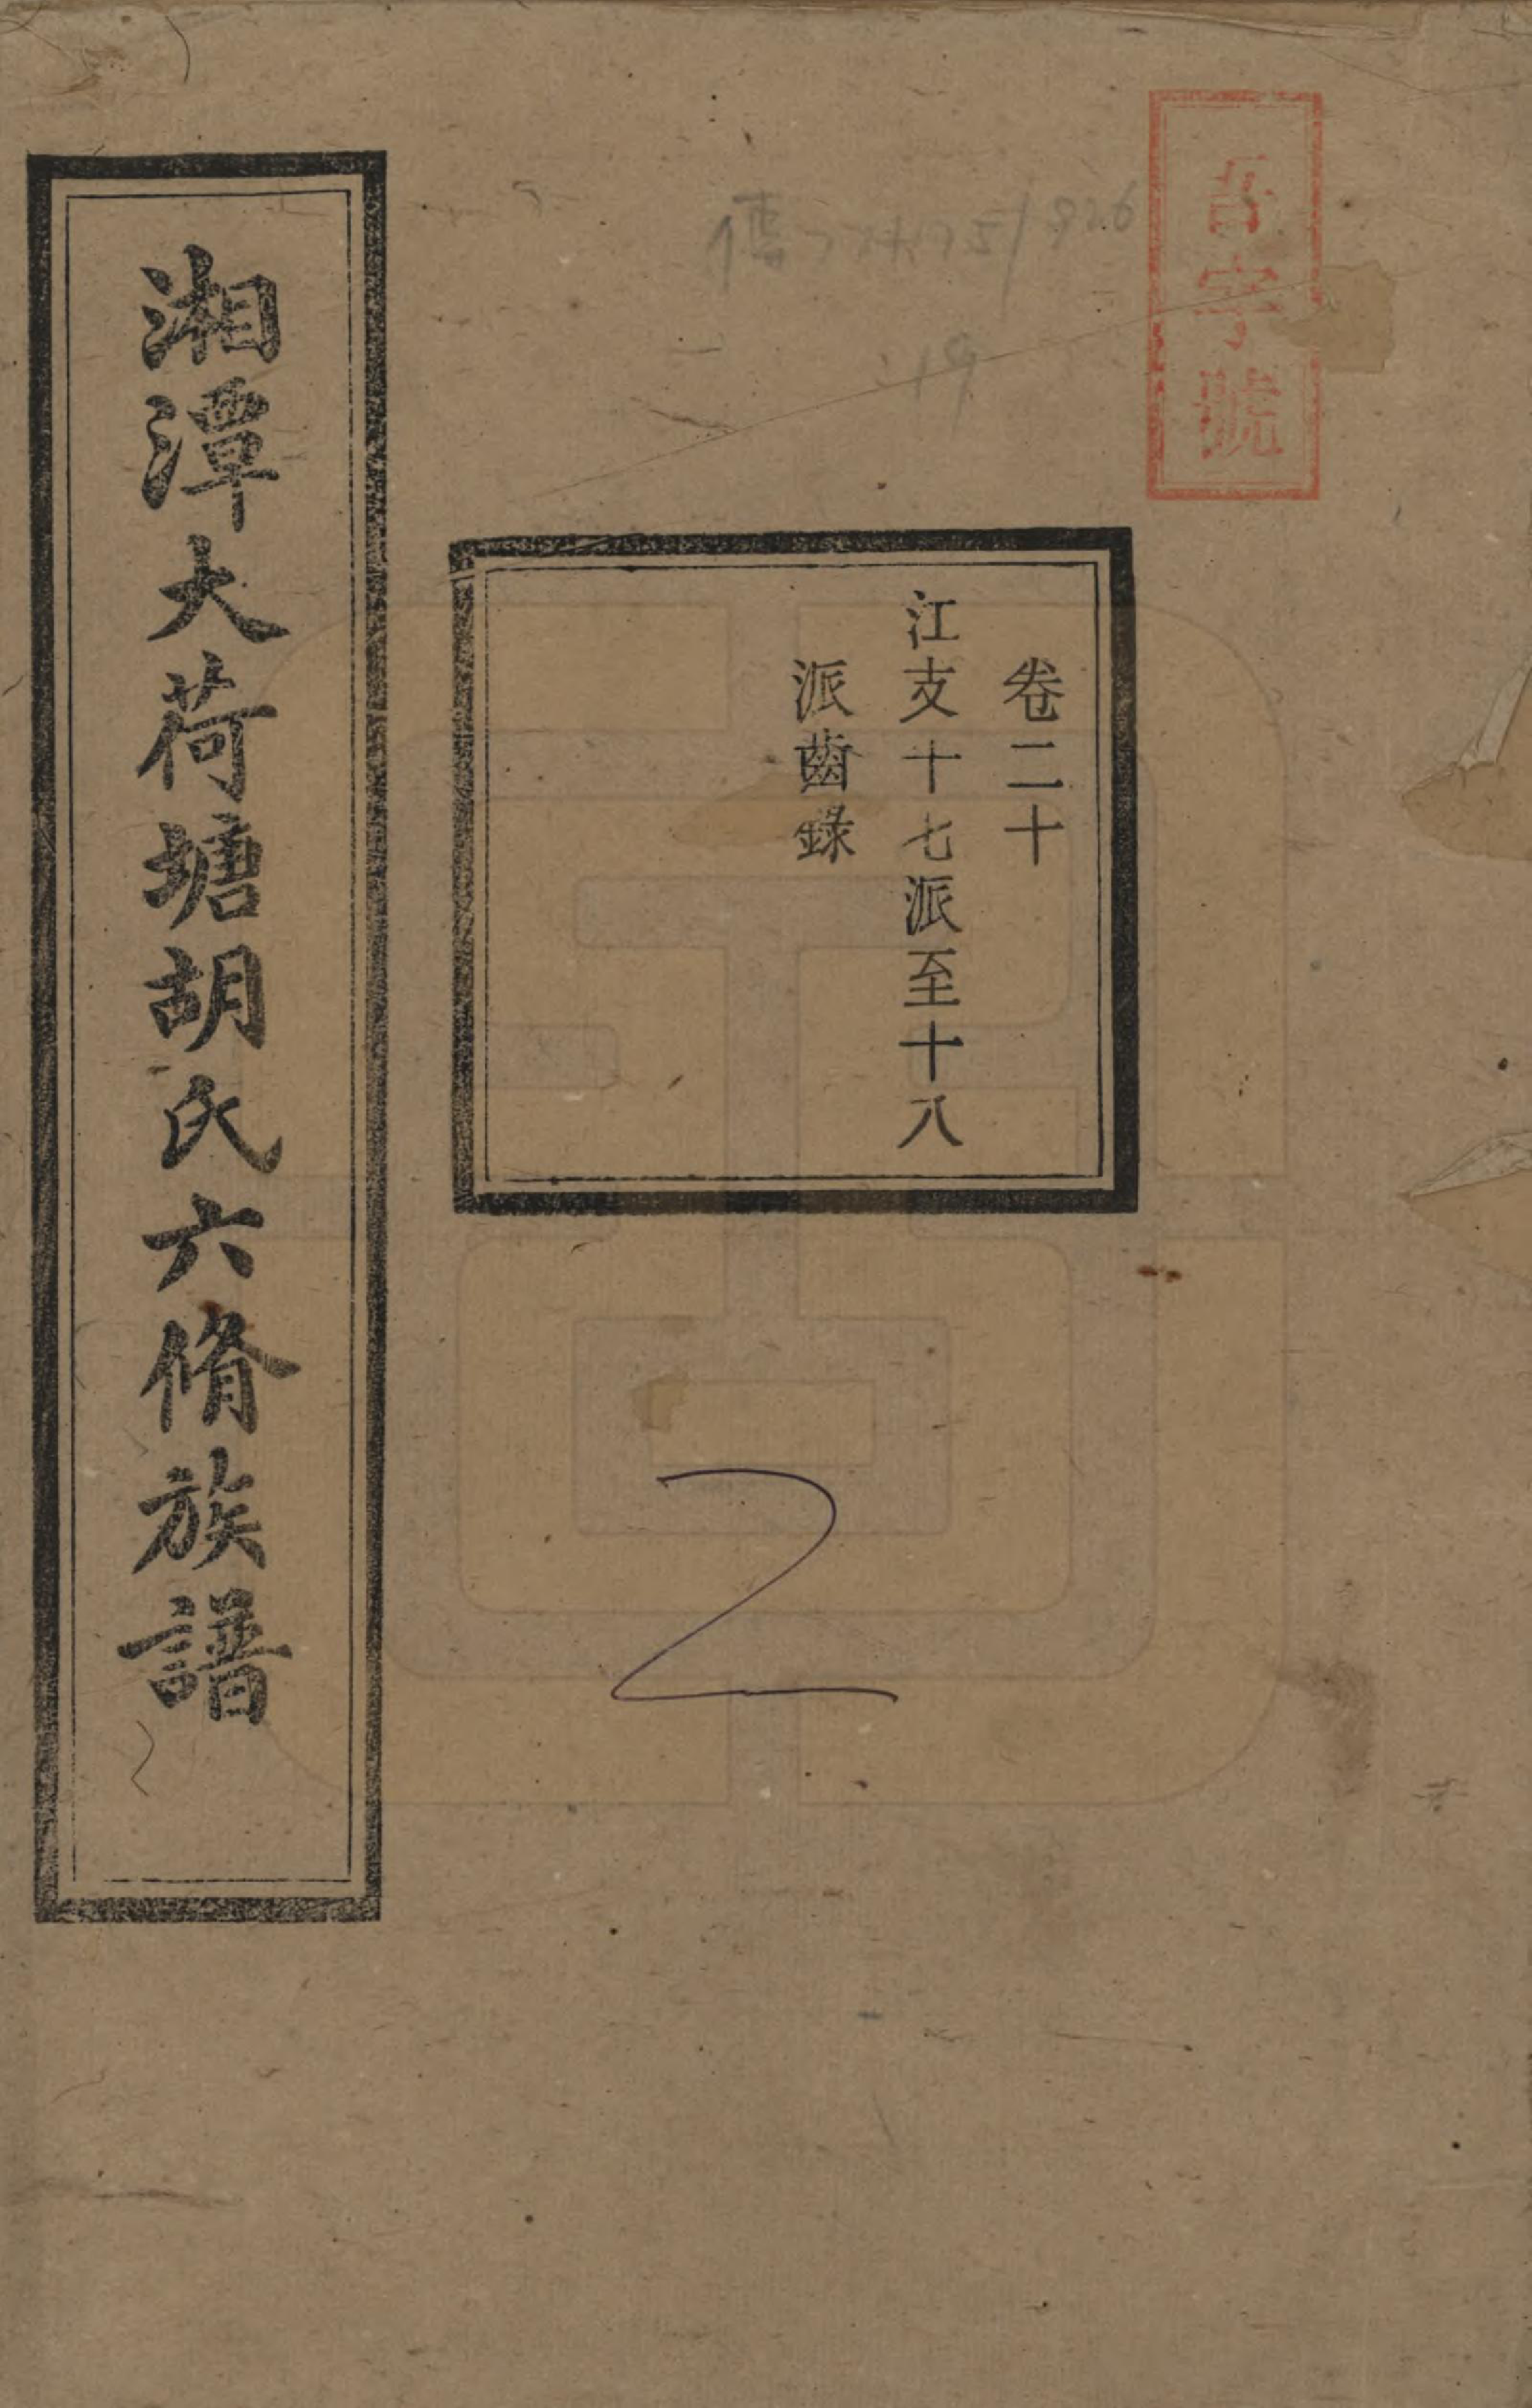 吉字號
卷二十
江支十七派至十八
派齒錄
湘潭大荷塘胡氏六脩族譜
2